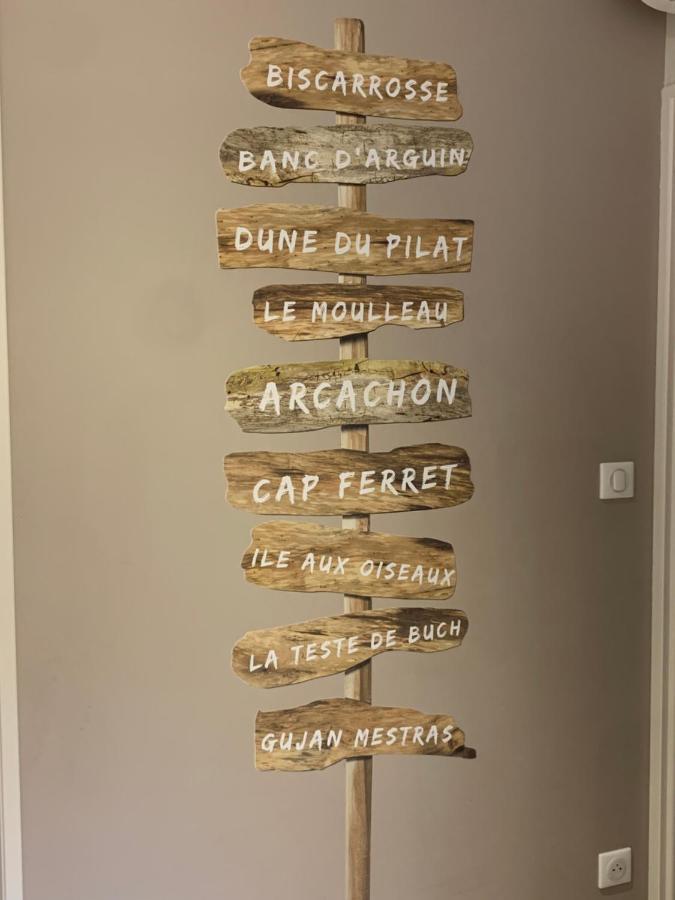 BISCARROSSE
BANC D'ARGUIN
DUNE DU PILAT
LE MOULLEAU
ARCACHON
CAP FERRET
ILE AUX OISEAUX
LA TESTE DE BUCH
GUJAN MESTRAS